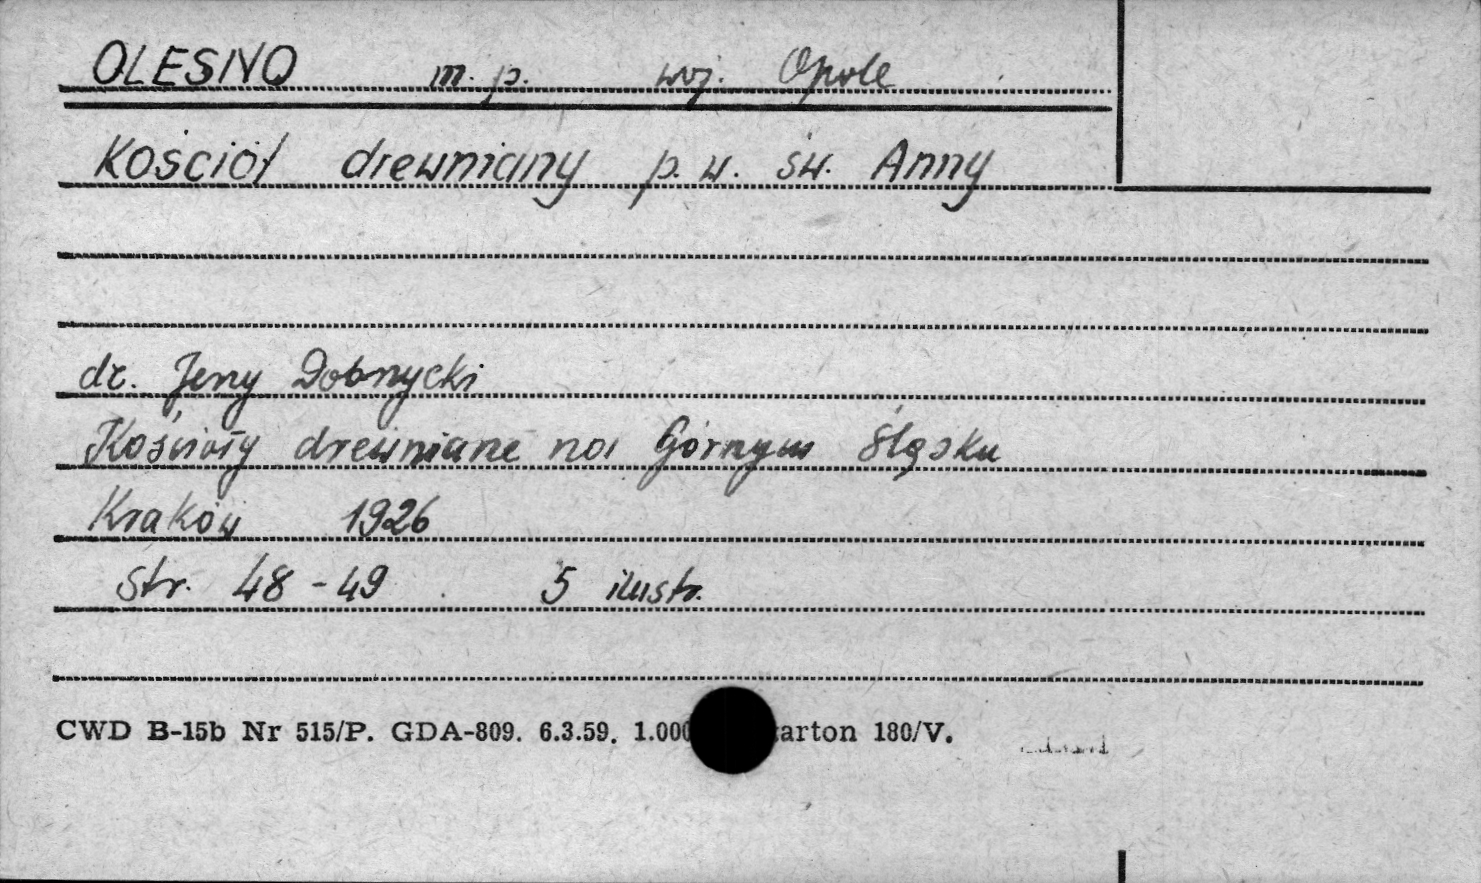 OLESNO m. p. woj. Opole
Kościół drewniany p. w. św. Anny
dr. Jerzy Dobrzycki
Kościoły drewniane na Górnym Śląsku
Kraków 1926
str. 48-49 5 ilustr.
CWD B-15b Nr 515/P. GDA-809. 6.3.59. 1.000 arton 180/V.